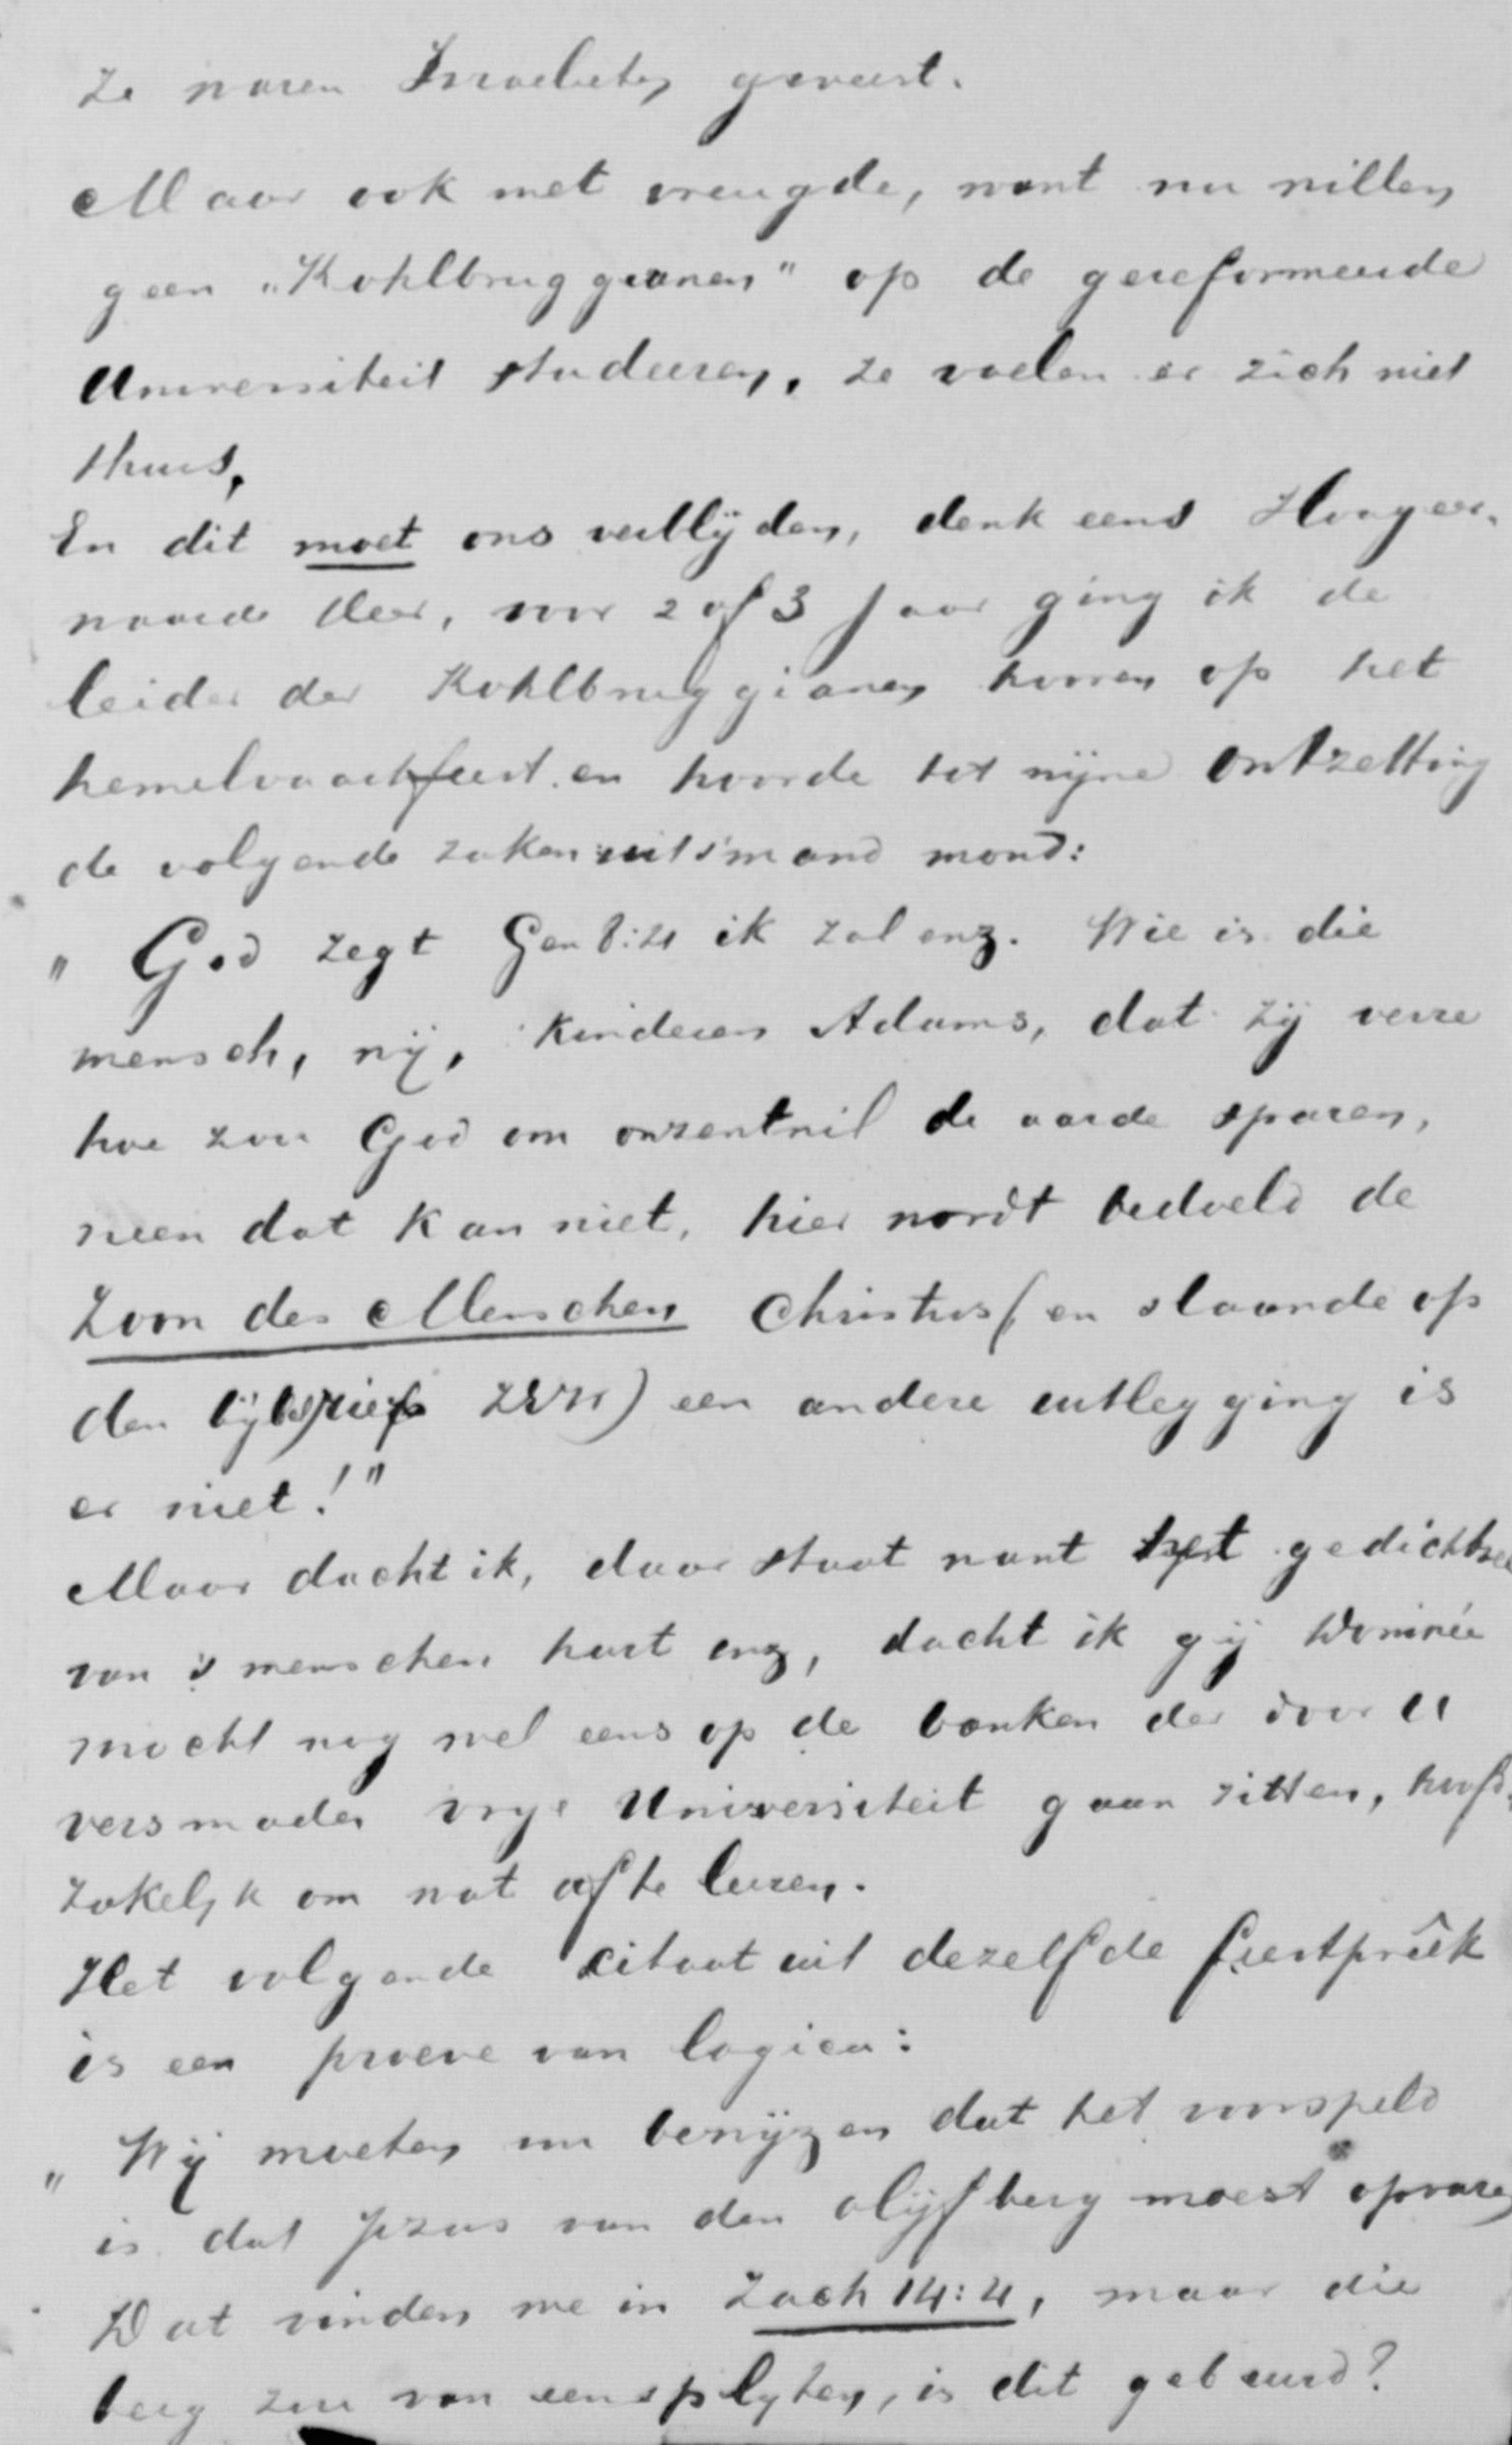 ze waren Israelieten geweest.
Maar ook met vreugde, want nu willen
geen „Kohlbruggianen" op de gereformeerde
Universiteit studeeren, ze voelen er zich niet
thuis,
En dit moet ons verblijden, denk eens Hooger-
waarde Heer, voor 2 of 3 jaar ging ik de
leider der Kohlbruggianen hooren op het
hemelvaartfeest en hoorde tot mijne ontzetting
de volgende zaken uit s'mans mond:
„ God zegt Gen 8:21 ik zal enz. Wie is die
mensch, wij, Kinderen Adams, dat zij verre
hoe zou God om onzentwil de aarde sparen,
neen dat kan niet, hier wordt bedoeld de
Zoon des Menschen Christus (en slaande op
den een andere uitlegging is
er niet!"
Maar dacht ik, daar staat want het gedichtsel
van 's menschen hart enz, dacht ik gij Dominée
mocht nog wel eens op de banken der door U
versmade vrije Universiteit gaan zitten, hoofd-
zakelyk om wat af te leeren.
Het volgende citaat uit dezelfde feestpreek
is een proeve van logica:
„ Wij moeten nu bewijzen dat het voorspeld
is dat Jezus van den olijfberg moest opvaren
Dat vinden we in Zach 14:4, maar die
berg zou van een splyten, is dit gebeurd?